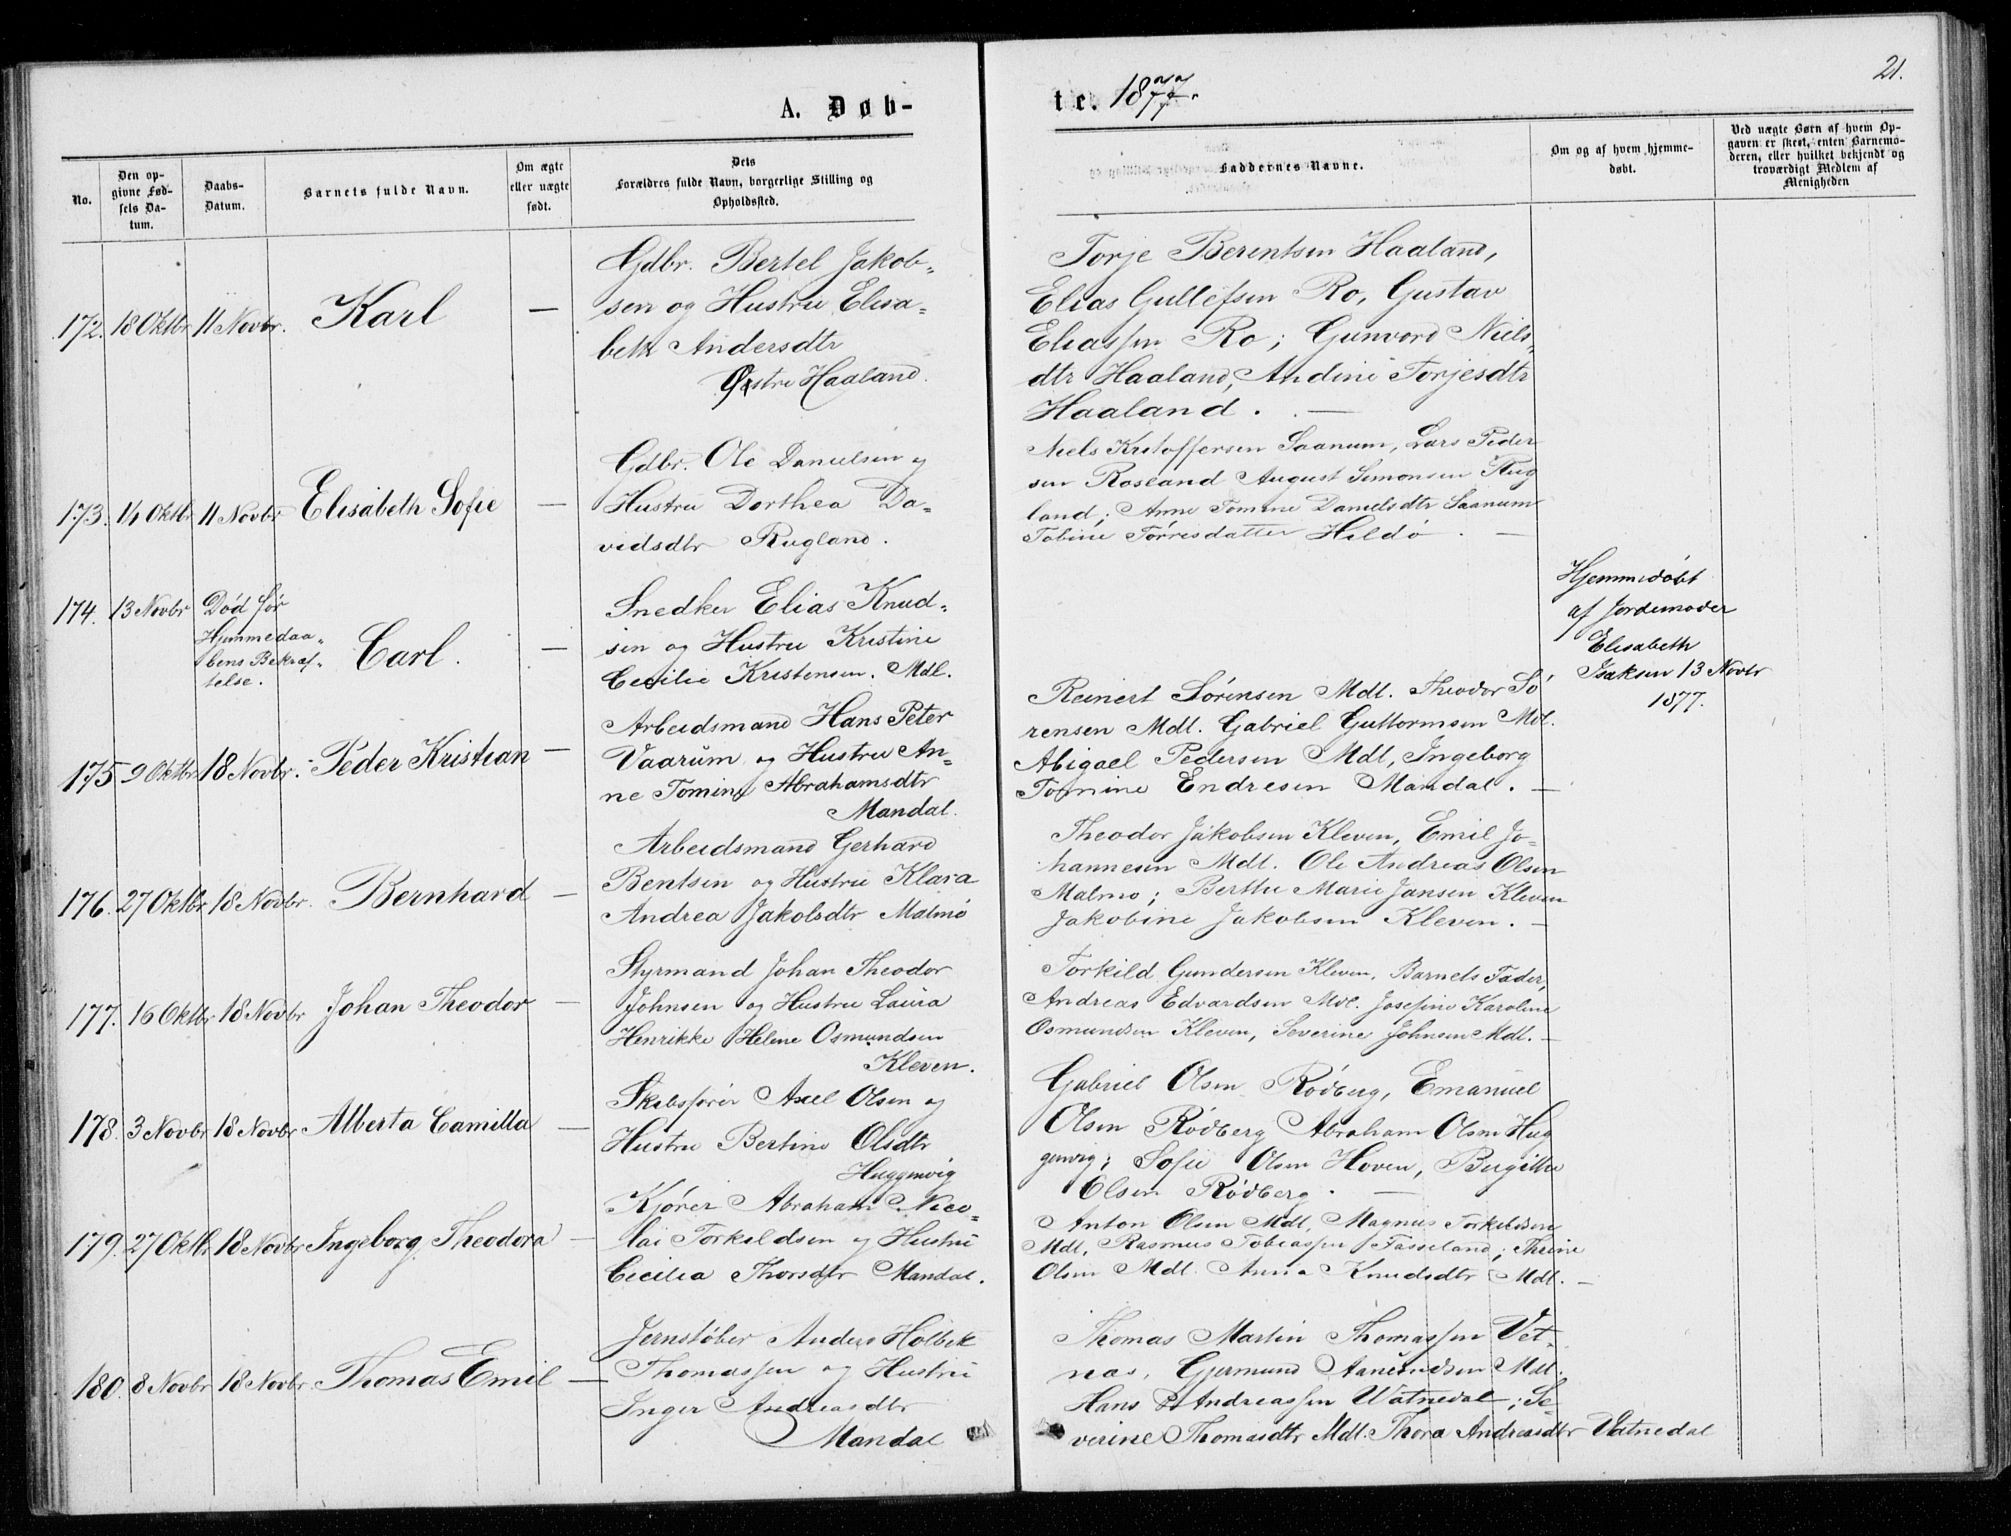 21.
A. Døb-
te. 1877.
No.
Den op-
givne Fød-
sels Da-
tum.
Daabs-
Datum.
Barnets fulde Navn.
Om ægte
eller uægte
født.
Dets
Forældres fulde Navn, borgerlige Stilling og
Opholdssted.
Faddernes Navne.
Om og af hvem hjemme-
døbt.
Ved uægte Børn af hvem Op-
gaven er skeet, enten Barnemo-
deren, eller hvilket bekjendt og
troværdigt Medlem af
Menigheden
172. 18 Oktbr 11 Novbr. Karl —
Gdbr. Bertel Jakob-
sen og Hustru Elisa-
beth Andersdtr
Østre Haaland.
Torje Berentsen Haaland,
Elias Gullefsen Ro, Gustav
Eliassen Ro; Gunvord Niels-
dtr Haaland, Andine Torjesdtr
Haaland. —
173. 14 Oktbr 11 Novbr Elisabeth Sofie —
Gdbr. Ole Danielsen og
Hustru Dorthea Da-
vidsdtr Rugland.
Niels Kristoffersen Saanum, Lars Peder
sen Roseland August Simonsen Rug
land; Anne Tomine Danielsdtr Saanum
Tobine Tørresdatter Hildø. —
174. 13 Novbr Død før
Hjemmedaa-
bens Bekræf-
telse.
Carl. —
Snedker Elias Knud-
sen og Hustru Kristine
Cecilie Kristensen. Mdl.
Hjemmedøbt
af Jordemoder
Elisabeth
Isaksen 13 Novbr
1877.
175 9 Oktbr 18 Novbr. Peder Kristian —
Arbeidsmand Hans Peter
Vaarum og Hustru An-
ne Tomine Abrahamsdtr
Mandal.
Reinert Sørensen Mdl. Theodor Sø
rensen Mdl. Gabriel Guttormsen Mdl.
Abigael Pedersen Mdl, Ingeborg
Tomine Endresen Mandal. —
176. 27 Oktbr 18 Novbr. Bernhard —
Arbeidsmand Gerhard
Bentsen og Hustru Klara
Andrea Jakobsdtr Malmø
Theodor Jakobsen Kleven, Emil Jo-
hannesen Mdl. Ole Andreas Olsen
Malmo; Berthe Marie Jansen Kleven
Jakobine Jakobsen Kleven. —
177. 16 Oktbr 18 Novbr Johan Theodor —
Styrmand Johan Theodor
Johnsen og Hustru Laura
Henrikke Helene Osmundsen
Kleven.
Torkild Gundersen Kleven, Barnets Fader,
Andreas Edvardsen Mdl. Josefine Karoline
Osmundsen Kleven, Severine Johnsen Mdl. —
178. 3 Novbr 18 Novbr Alberta Camilla —
Skibsfører Axel Olsen og
Hustru Bertine Olsdtr
Huggenvig
Gabriel Olsen Rødberg, Emanuel
Olsen Rødberg Abraham Olsen Hug
genvig; Sofie Olsen Hoven, Birgitte
Olsen Rødberg. —
179. 27 Oktbr 18 Novbr Ingeborg Theodora —
Kjører Abraham Nico-
lai Torkildsen og Hustru
Cecilia Thorsdtr Mandal.
Anton Olsen Mdl, Magnus Torkildsen
Mdl, Rasmus Tobiassen Fasseland; Thrine
Olsen Mdl. Anna Knudsdtr Mdl. —
180. 8 Novbr 18 Novbr. Thomas Emil —
Jernstøber Anders Holbek
Thomassen og Hustru
Inger Andreasdtr
Mandal
Thomas Martin Thomassen Vet-
nas, Gjermund Aanensen Mdl.
Hans Andreassen Vatnedal; Se-
verine Thomasdtr Mdl. Thora Andreasdtr Vatnedal